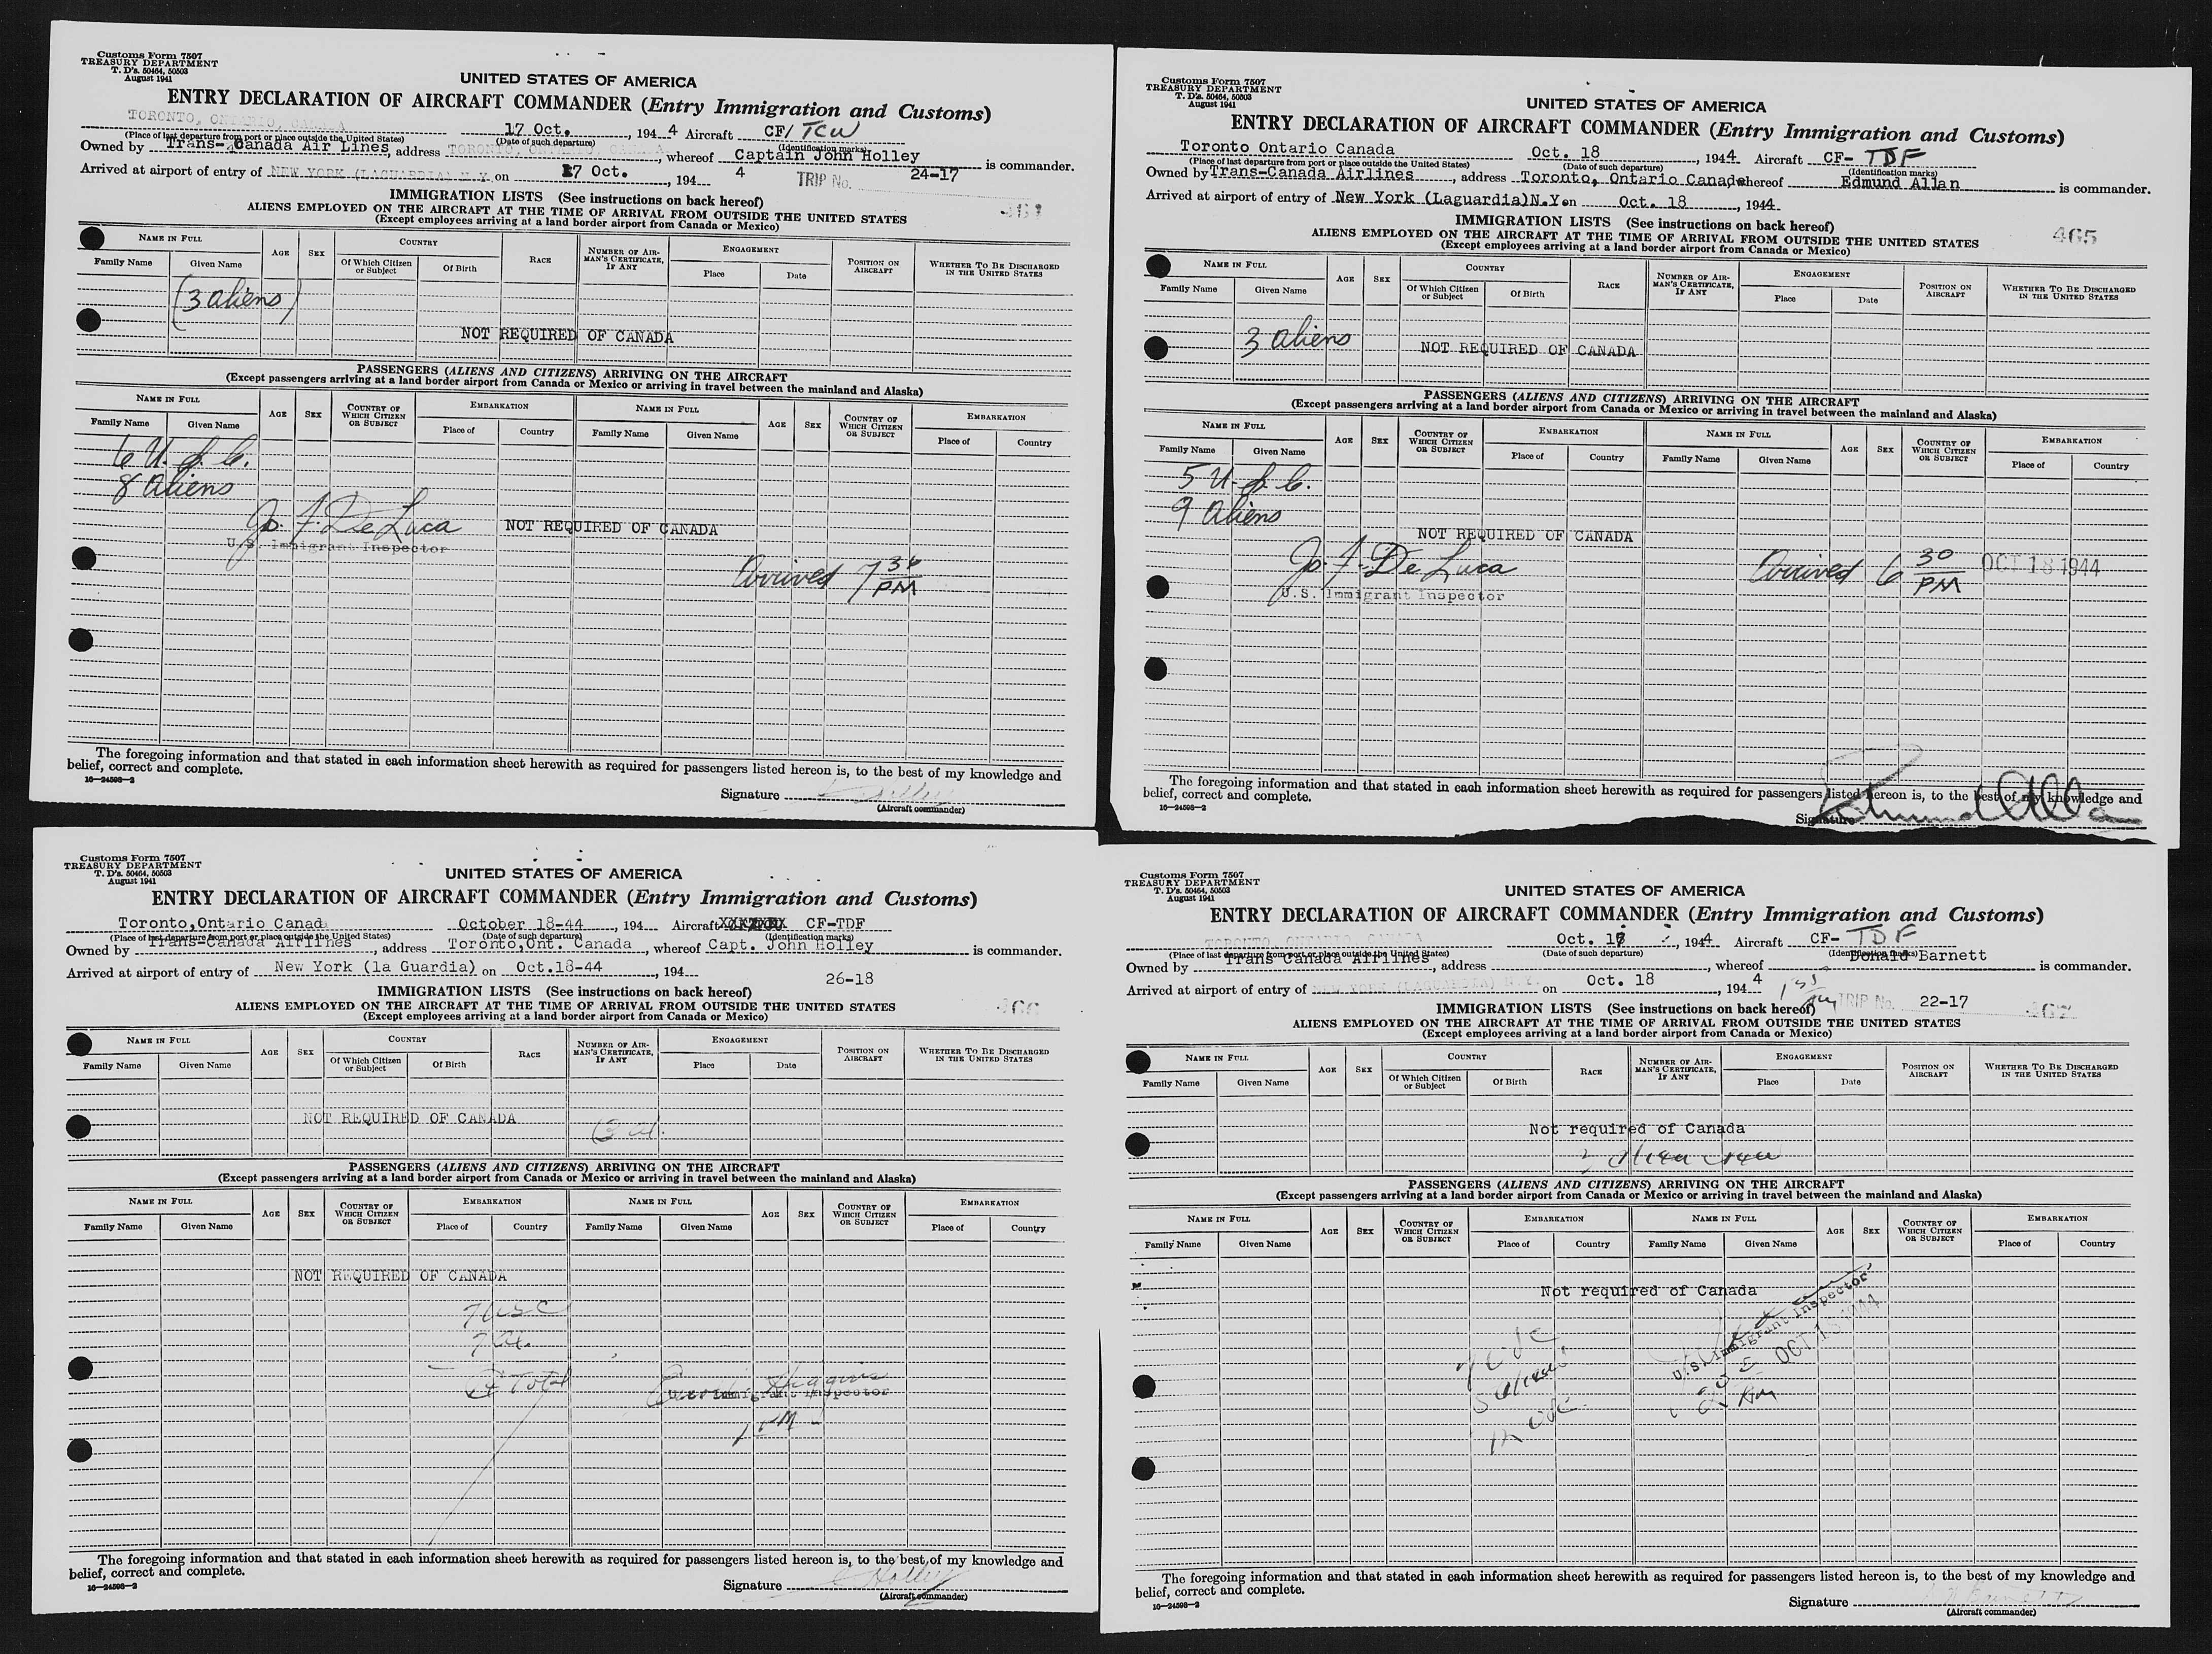 Customs Form 7507
TREASURY DEPARTMENT
T. D's. 50464, 50503
August 1941
UNITED STATES OF AMERICA
ENTRY DECLARATION OF AIRCRAFT COMMANDER (Entry Immigration and Customs)
TORONTO, ONTARIO, CANADA 17 Oct. , 194 4 Aircraft CF/ TCW
(Place of last departure from port or place outside the United States) (Date of such departure) (Identification marks)
Owned by Trans-Canada Air Lines, address TORONTO, ONTARIO, CANADA, whereof Captain John Holley is commander.
Arrived at airport of entry of NEW YORK (LAGUARDIA) N.Y. on 17 Oct. , 194 4 TRIP No. 24-17
IMMIGRATION LISTS (See instructions on back hereof)
ALIENS EMPLOYED ON THE AIRCRAFT AT THE TIME OF ARRIVAL FROM OUTSIDE THE UNITED STATES
(Except employees arriving at a land border airport from Canada or Mexico)
NAME IN FULL AGE SEX COUNTRY RACE NUMBER OF AIRMAN'S CERTIFICATE, IF ANY ENGAGEMENT POSITION ON AIRCRAFT WHETHER TO BE DISCHARGED IN THE UNITED STATES
Family Name Given Name Of Which Citizen or Subject Of Birth Place Date
(3 aliens)
NOT REQUIRED OF CANADA
PASSENGERS (ALIENS AND CITIZENS) ARRIVING ON THE AIRCRAFT
(Except passengers arriving at a land border airport from Canada or Mexico or arriving in travel between the mainland and Alaska)
NAME IN FULL AGE SEX COUNTRY OF WHICH CITIZEN OR SUBJECT EMBARKATION NAME IN FULL AGE SEX COUNTRY OF WHICH CITIZEN OR SUBJECT EMBARKATION
Family Name Given Name Place of Country Family Name Given Name Place of Country
6 U.S.C.
8 aliens
Jo. F. De Luca NOT REQUIRED OF CANADA
U.S. Immigrant Inspector
Arrived 7 36 PM
The foregoing information and that stated in each information sheet herewith as required for passengers listed hereon is, to the best of my knowledge and
belief, correct and complete.
16—24598-2
Signature
(Aircraft commander)
Customs Form 7507
TREASURY DEPARTMENT
T. D's. 50464, 50503
August 1941
UNITED STATES OF AMERICA
ENTRY DECLARATION OF AIRCRAFT COMMANDER (Entry Immigration and Customs)
Toronto Ontario Canada Oct. 18 , 1944 Aircraft CF- TDF
(Place of last departure from port or place outside the United States) (Date of such departure) (Identification marks)
Owned by Trans-Canada Airlines, address Toronto, Ontario Canada whereof Edmund Allan is commander.
Arrived at airport of entry of New York (Laguardia)N.Y on Oct. 18 , 1944
IMMIGRATION LISTS (See instructions on back hereof)
465
ALIENS EMPLOYED ON THE AIRCRAFT AT THE TIME OF ARRIVAL FROM OUTSIDE THE UNITED STATES
(Except employees arriving at a land border airport from Canada or Mexico)
NAME IN FULL AGE SEX COUNTRY RACE NUMBER OF AIRMAN'S CERTIFICATE, IF ANY ENGAGEMENT POSITION ON AIRCRAFT WHETHER TO BE DISCHARGED IN THE UNITED STATES
Family Name Given Name Of Which Citizen or Subject Of Birth Place Date
3 aliens
NOT REQUIRED OF CANADA
PASSENGERS (ALIENS AND CITIZENS) ARRIVING ON THE AIRCRAFT
(Except passengers arriving at a land border airport from Canada or Mexico or arriving in travel between the mainland and Alaska)
NAME IN FULL AGE SEX COUNTRY OF WHICH CITIZEN OR SUBJECT EMBARKATION NAME IN FULL AGE SEX COUNTRY OF WHICH CITIZEN OR SUBJECT EMBARKATION
Family Name Given Name Place of Country Family Name Given Name Place of Country
5 U.S.C.
9 aliens
NOT REQUIRED OF CANADA
Jo. F. De Luca Arrived 6 30 PM OCT 18 1944
U.S. Immigrant Inspector
The foregoing information and that stated in each information sheet herewith as required for passengers listed hereon is, to the best of my knowledge and
belief, correct and complete.
16—24598-2
Signature Edmund Allan
Customs Form 7507
TREASURY DEPARTMENT
T. D's. 50464, 50503
August 1941
UNITED STATES OF AMERICA
ENTRY DECLARATION OF AIRCRAFT COMMANDER (Entry Immigration and Customs)
Toronto,Ontario Canad October 18-44 , 194 Aircraft CF-TDF
(Place of last departure from port or place outside the United States) (Date of such departure) (Identification marks)
Owned by Trans-Canada Airlines, address Toronto,Ont. Canada, whereof Capt. John Holley is commander.
Arrived at airport of entry of New York (la Guardia) on Oct.18-44 , 194
26-18
IMMIGRATION LISTS (See instructions on back hereof)
ALIENS EMPLOYED ON THE AIRCRAFT AT THE TIME OF ARRIVAL FROM OUTSIDE THE UNITED STATES
466
(Except employees arriving at a land border airport from Canada or Mexico)
NAME IN FULL AGE SEX COUNTRY RACE NUMBER OF AIRMAN'S CERTIFICATE, IF ANY ENGAGEMENT POSITION ON AIRCRAFT WHETHER TO BE DISCHARGED IN THE UNITED STATES
Family Name Given Name Of Which Citizen or Subject Of Birth Place Date
NOT REQUIRED OF CANADA (3 al.
PASSENGERS (ALIENS AND CITIZENS) ARRIVING ON THE AIRCRAFT
(Except passengers arriving at a land border airport from Canada or Mexico or arriving in travel between the mainland and Alaska)
NAME IN FULL AGE SEX COUNTRY OF WHICH CITIZEN OR SUBJECT EMBARKATION NAME IN FULL AGE SEX COUNTRY OF WHICH CITIZEN OR SUBJECT EMBARKATION
Family Name Given Name Place of Country Family Name Given Name Place of Country
NOT REQUIRED OF CANADA
7 USC
7 al.
14 Total
Higgins
U.S. Immigrant Inspector
1 PM
The foregoing information and that stated in each information sheet herewith as required for passengers listed hereon is, to the best of my knowledge and
belief, correct and complete.
16—24598-2
Signature Holley
(Aircraft commander)
Customs Form 7507
TREASURY DEPARTMENT
T. D's. 50464, 50503
August 1941
UNITED STATES OF AMERICA
ENTRY DECLARATION OF AIRCRAFT COMMANDER (Entry Immigration and Customs)
TORONTO, ONTARIO, CANADA Oct. 18 , 1944 Aircraft CF- TDF
(Place of last departure from port or place outside the United States) (Date of such departure) (Identification marks)
Owned by Trans Canada Airlines, address , whereof Donald Barnett is commander.
Arrived at airport of entry of NEW YORK (LAGUARDIA) N.Y. on Oct. 18 , 194 4
TRIP No. 22-17
IMMIGRATION LISTS (See instructions on back hereof)
467
ALIENS EMPLOYED ON THE AIRCRAFT AT THE TIME OF ARRIVAL FROM OUTSIDE THE UNITED STATES
(Except employees arriving at a land border airport from Canada or Mexico)
NAME IN FULL AGE SEX COUNTRY RACE NUMBER OF AIRMAN'S CERTIFICATE, IF ANY ENGAGEMENT POSITION ON AIRCRAFT WHETHER TO BE DISCHARGED IN THE UNITED STATES
Family Name Given Name Of Which Citizen or Subject Of Birth Place Date
Not required of Canada
3 alien crew
PASSENGERS (ALIENS AND CITIZENS) ARRIVING ON THE AIRCRAFT
(Except passengers arriving at a land border airport from Canada or Mexico or arriving in travel between the mainland and Alaska)
NAME IN FULL AGE SEX COUNTRY OF WHICH CITIZEN OR SUBJECT EMBARKATION NAME IN FULL AGE SEX COUNTRY OF WHICH CITIZEN OR SUBJECT EMBARKATION
Family Name Given Name Place of Country Family Name Given Name Place of Country
Not required of Canada
U.S. Immigrant Inspector
OCT 18 1944
5 aliens
The foregoing information and that stated in each information sheet herewith as required for passengers listed hereon is, to the best of my knowledge and
belief, correct and complete.
16—24598-2
Signature
(Aircraft commander)